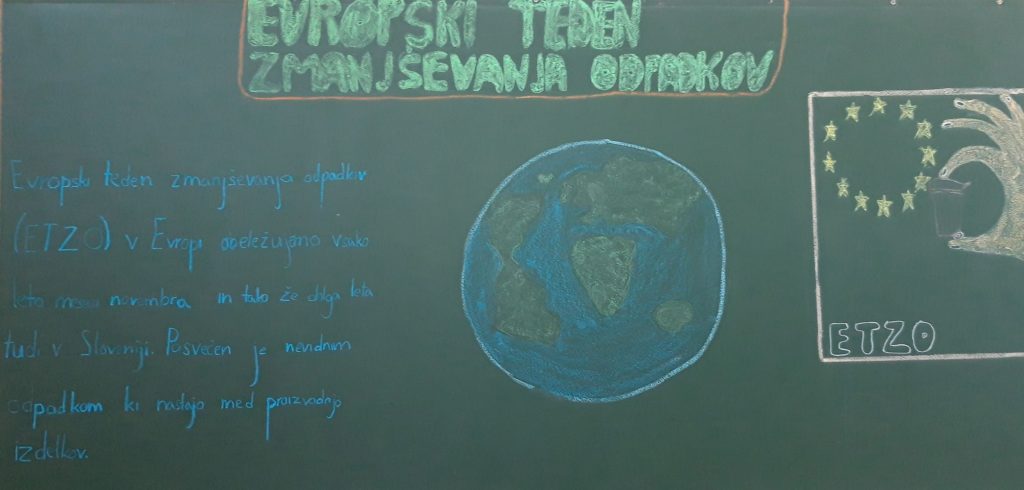 EVROPSKI TEDEN
ZMANJŠEVANJA ODPADKOV
Evropski teden zmanjševanja odpadkov
(ETZO) v Evropi obeležujemo vsako
leto meseca novembra in tako že dolga leta
tudi v Sloveniji. Posvečen je nevidnim
odpadkom ki nastajo med proizvodnjo
izdelkov.
ETZO